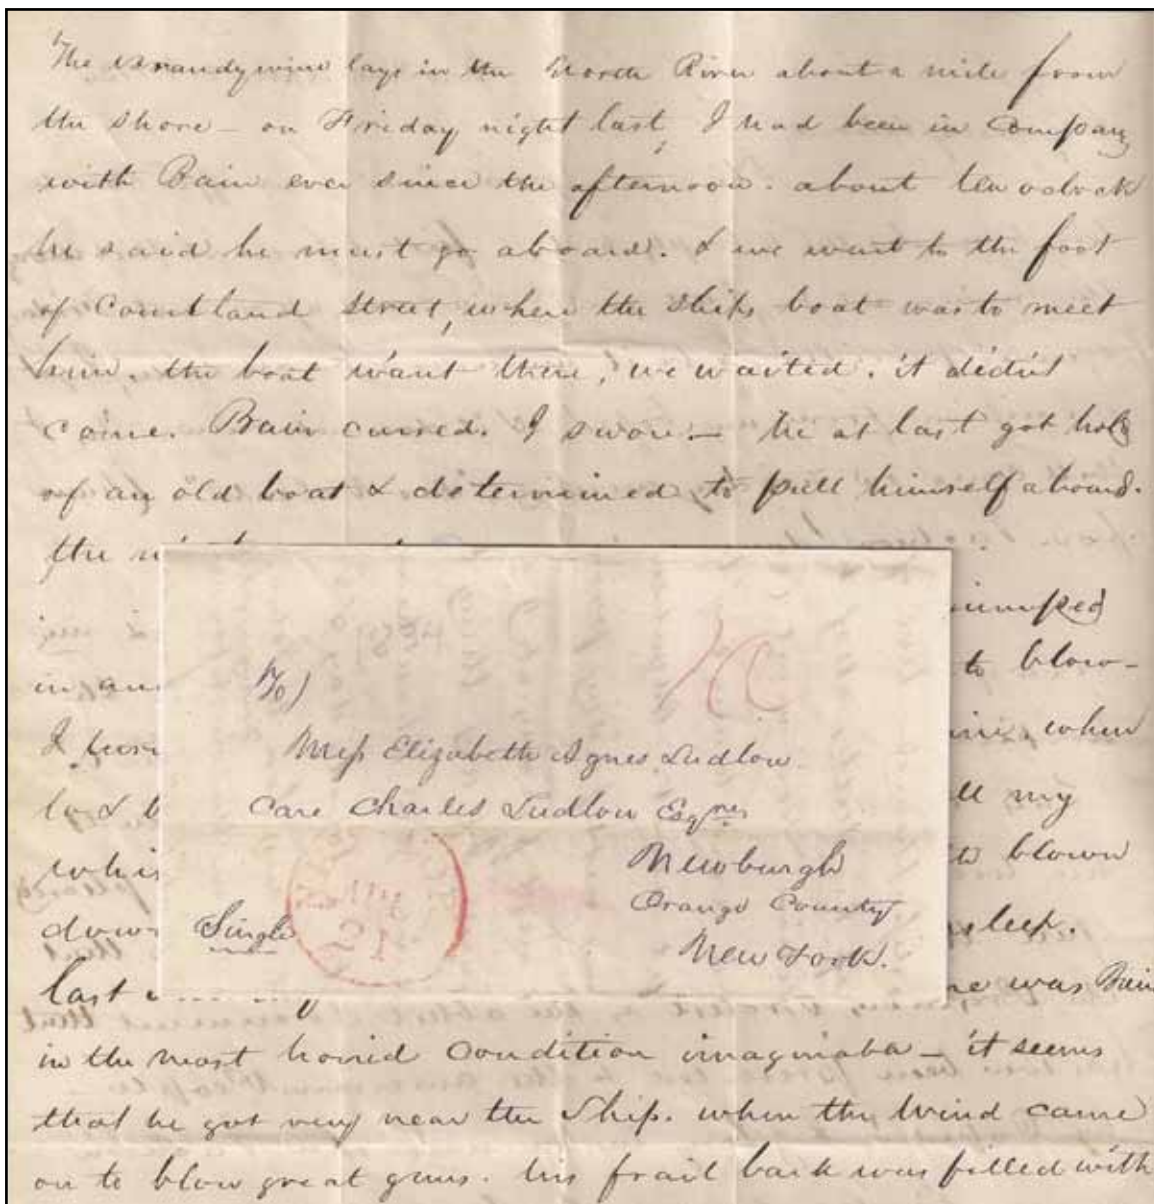 The Brandywine lays in the North River about a mile from
the shore – on Friday night last, I had been in Company
with Bain ever since the afternoon. about ten oclock
he said he must go aboard. & we went to the foot
of Courtland Street, where the ships boat was to meet
him. the boat wa'nt there, we waited. it did'nt
come. Bain cursed. I swore – he at last got hold
of an old boat & determined to pull himself aboard.
the
jumped
in
to blow –
I
when
lo & b
ll my
whis
blown
down
sleep.
last
was Bain
in the most horrid Condition imaginable – it seems
that he got very near the Ship. when the Wind came
on to blow great guns. his frail bark was filled with
Miss Elizabeth Agnes Ludlow
Care Charles Ludlow Esqre
Newburgh
Orange County
New York.
Single
21